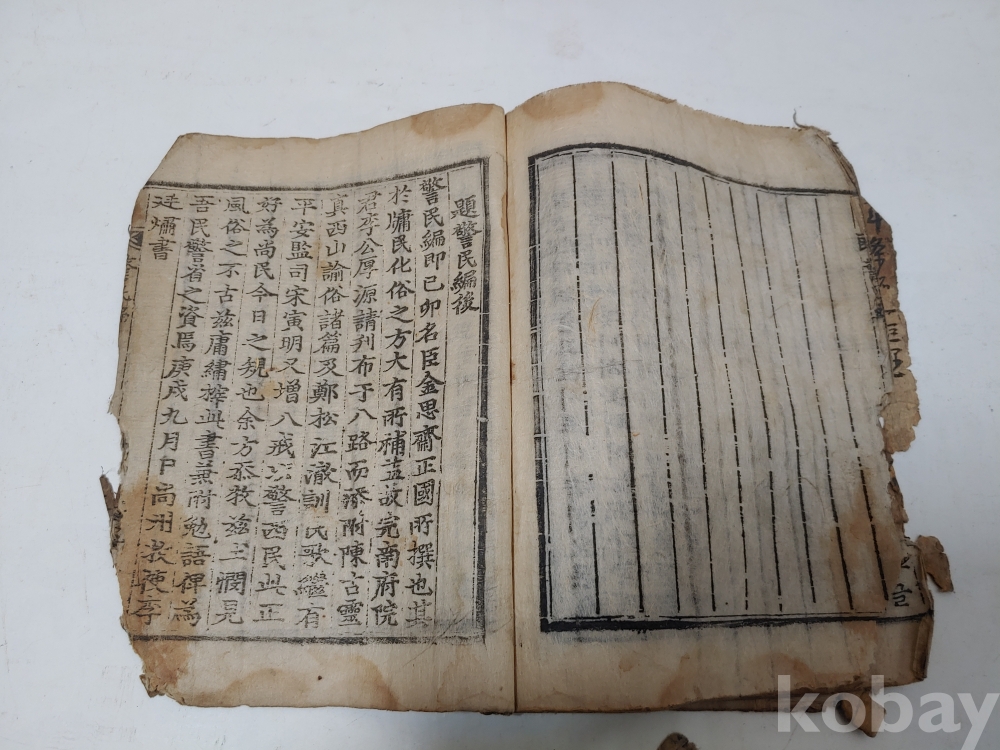 題警民編後
警民編即己卯名臣金思齋正國所撰也其
於牖民化俗之方大有所補益故完南府院
君李公厚源請刋布于八路而添附陳古靈
眞西山諭俗諸篇及鄭松江澈訓民歌繼有
平安監司宋寅明又增八戒以警西民此正
好為尚民今日之規也余方忝牧玆土憫
風俗之不古玆庸繡榟與書兼附勉語俾為
吾民警省之資焉庚戌九月日尚州牧使李
廷熽書
kobay